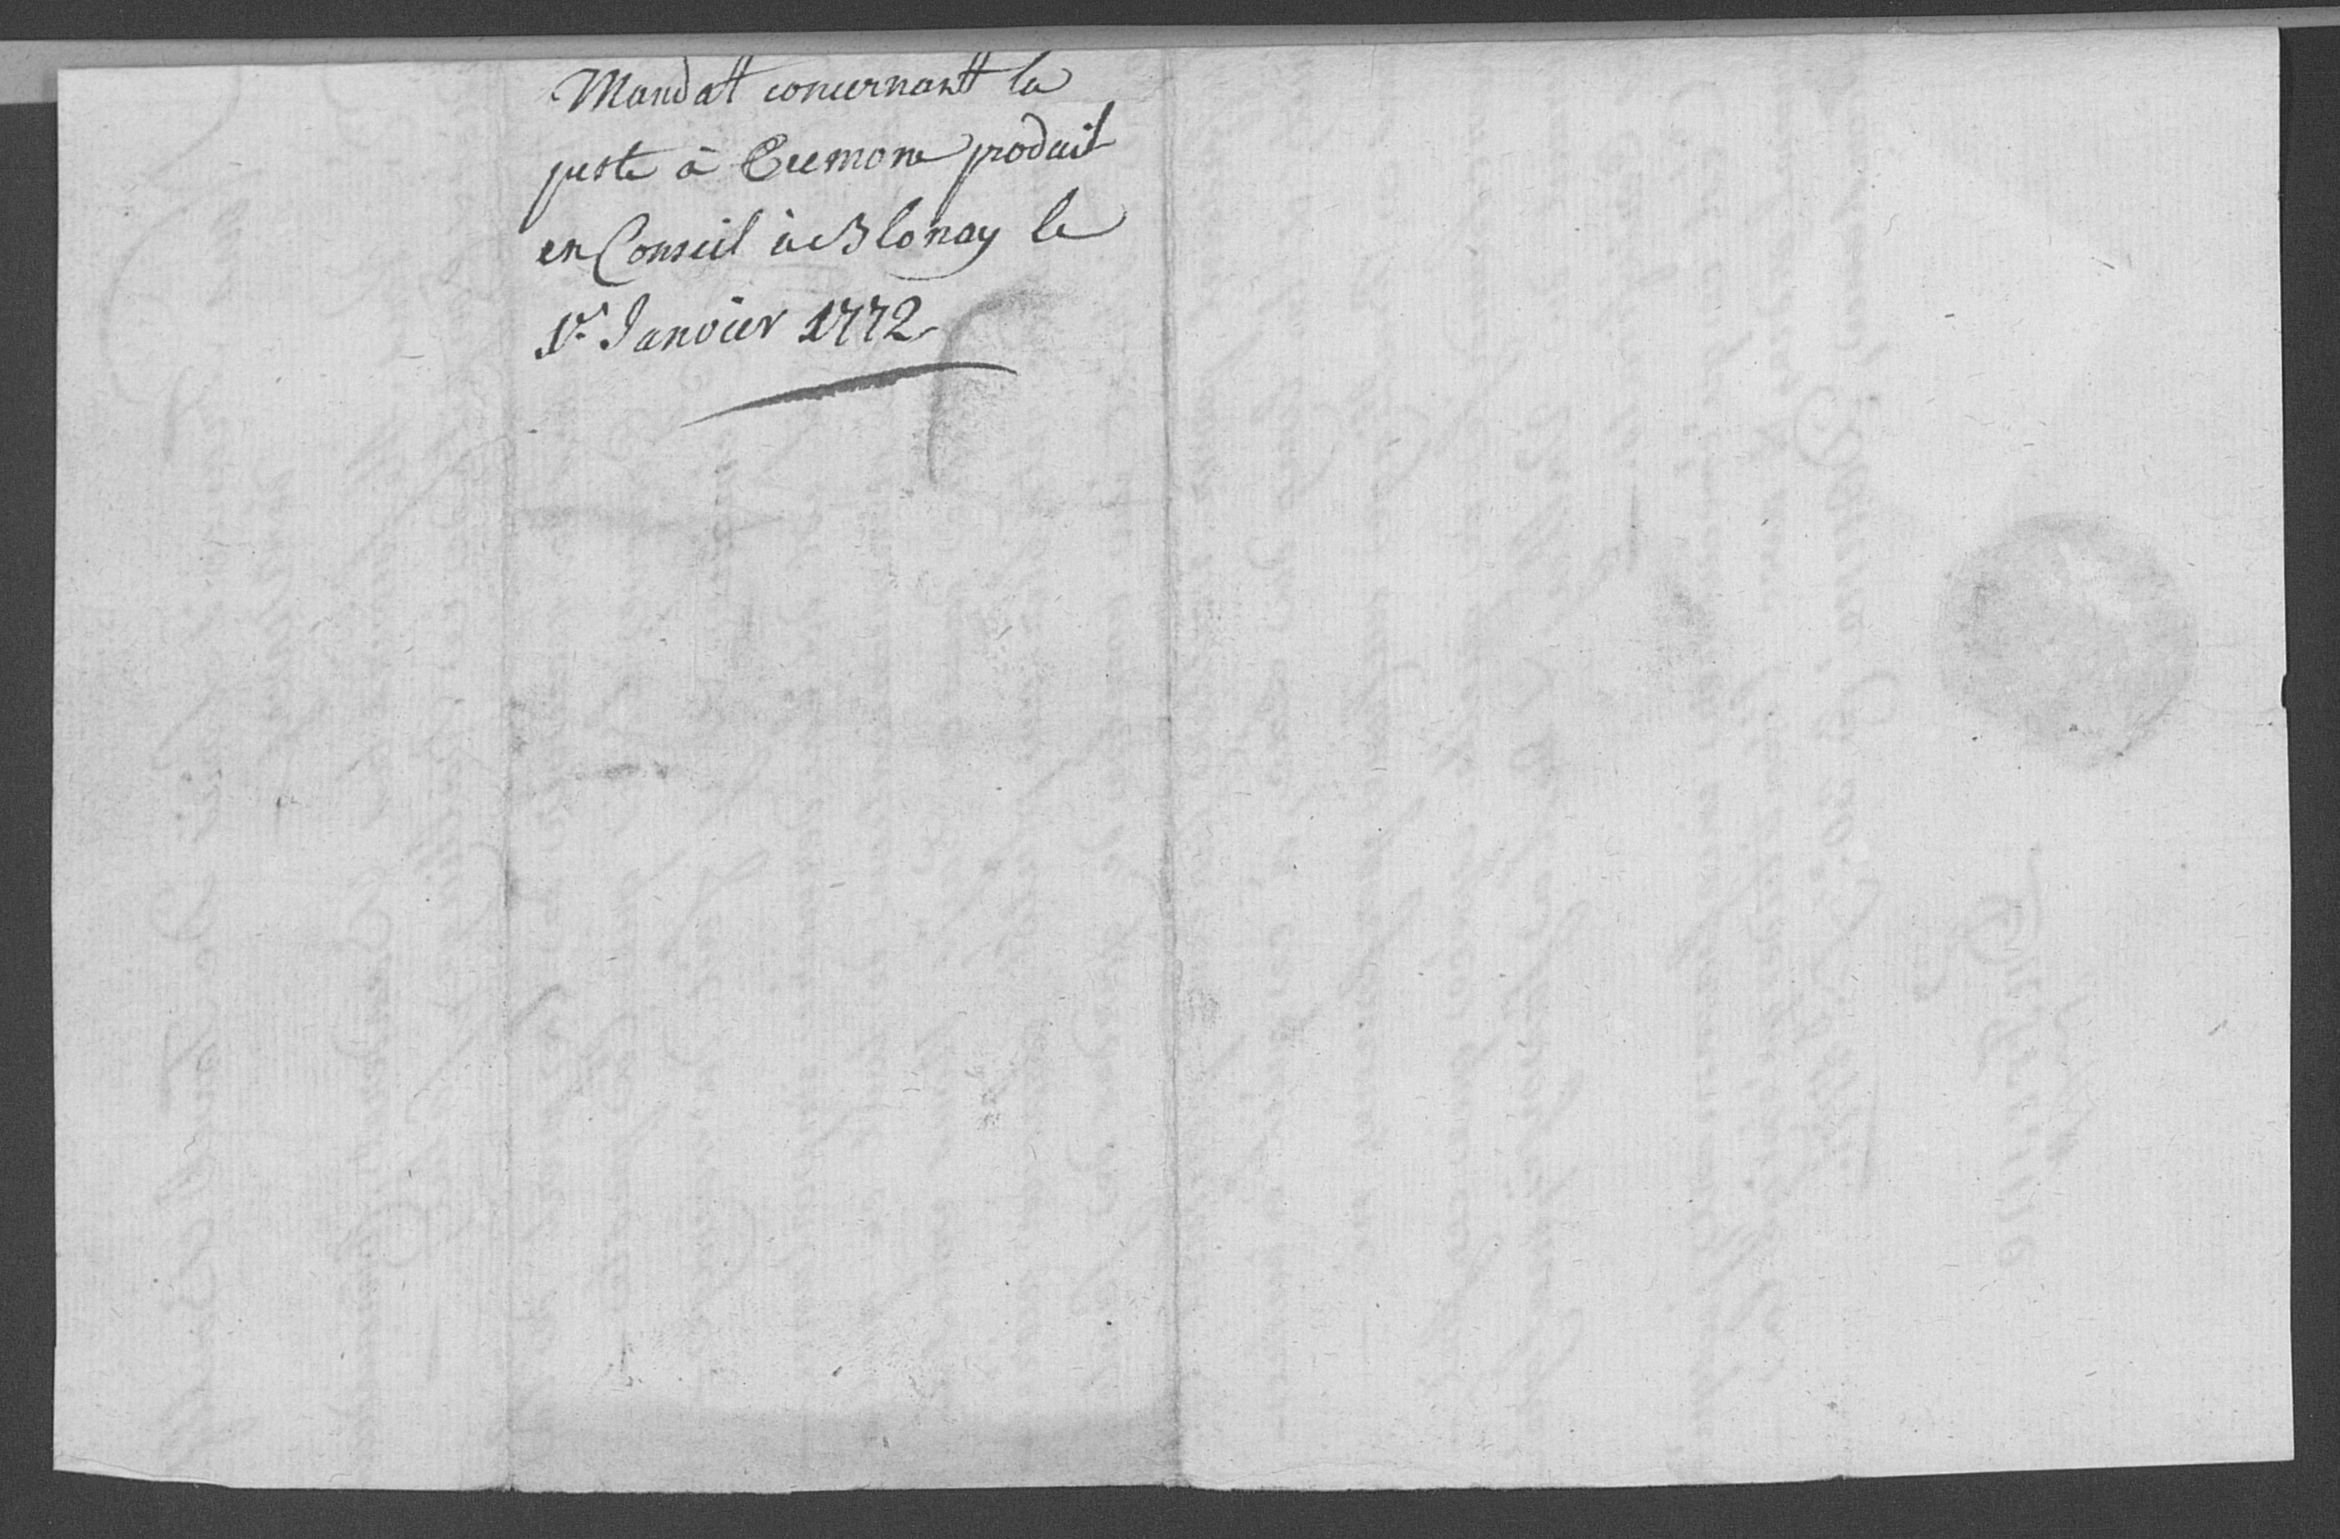 Mandatt concernantt la
peste à Cremone produit
en Conseil à Blonay le
1.er Janvier 1772